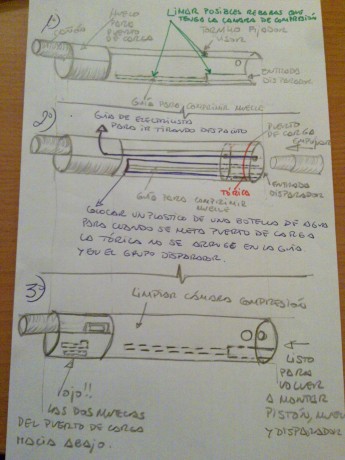 1º)
LIMAR POSIBLES REBABAS QUE
TENGA LA CÁMARA DE COMPRESIÓN
MUELLE
PUERTO
DE CARGA
TORNILLO FIJADOR
VISOR
ENTRADA
DISPARADOR
GUÍA PARA COMPRIMIR MUELLE
2º)
GUÍA DE ELECTRICISTA
PARA IR TIRANDO DESPACITO
PUERTO
DE CARGA
EMPUJAR
ENTRADA
DISPARADOR
TÓRICA
GUÍA PARA COMPRIMIR
MUELLE
COLOCAR UN PLASTICO DE UNA BOTELLA DE AGUA
PARA CUANDO SE META PUERTO DE CARGA
LA TÓRICA NO SE ARRUGE EN LA GUÍA
Y EN EL GRUPO DISPARADOR.
3º)
LIMPIAR CÁMARA COMPRESIÓN
¡OJO!!
LAS DOS MUESCAS
DEL PUERTO DE CARGA
HACIA ABAJO.
LISTO
PARA
VOLVER
A MONTAR
PISTÓN, MUELLE
Y DISPARADOR